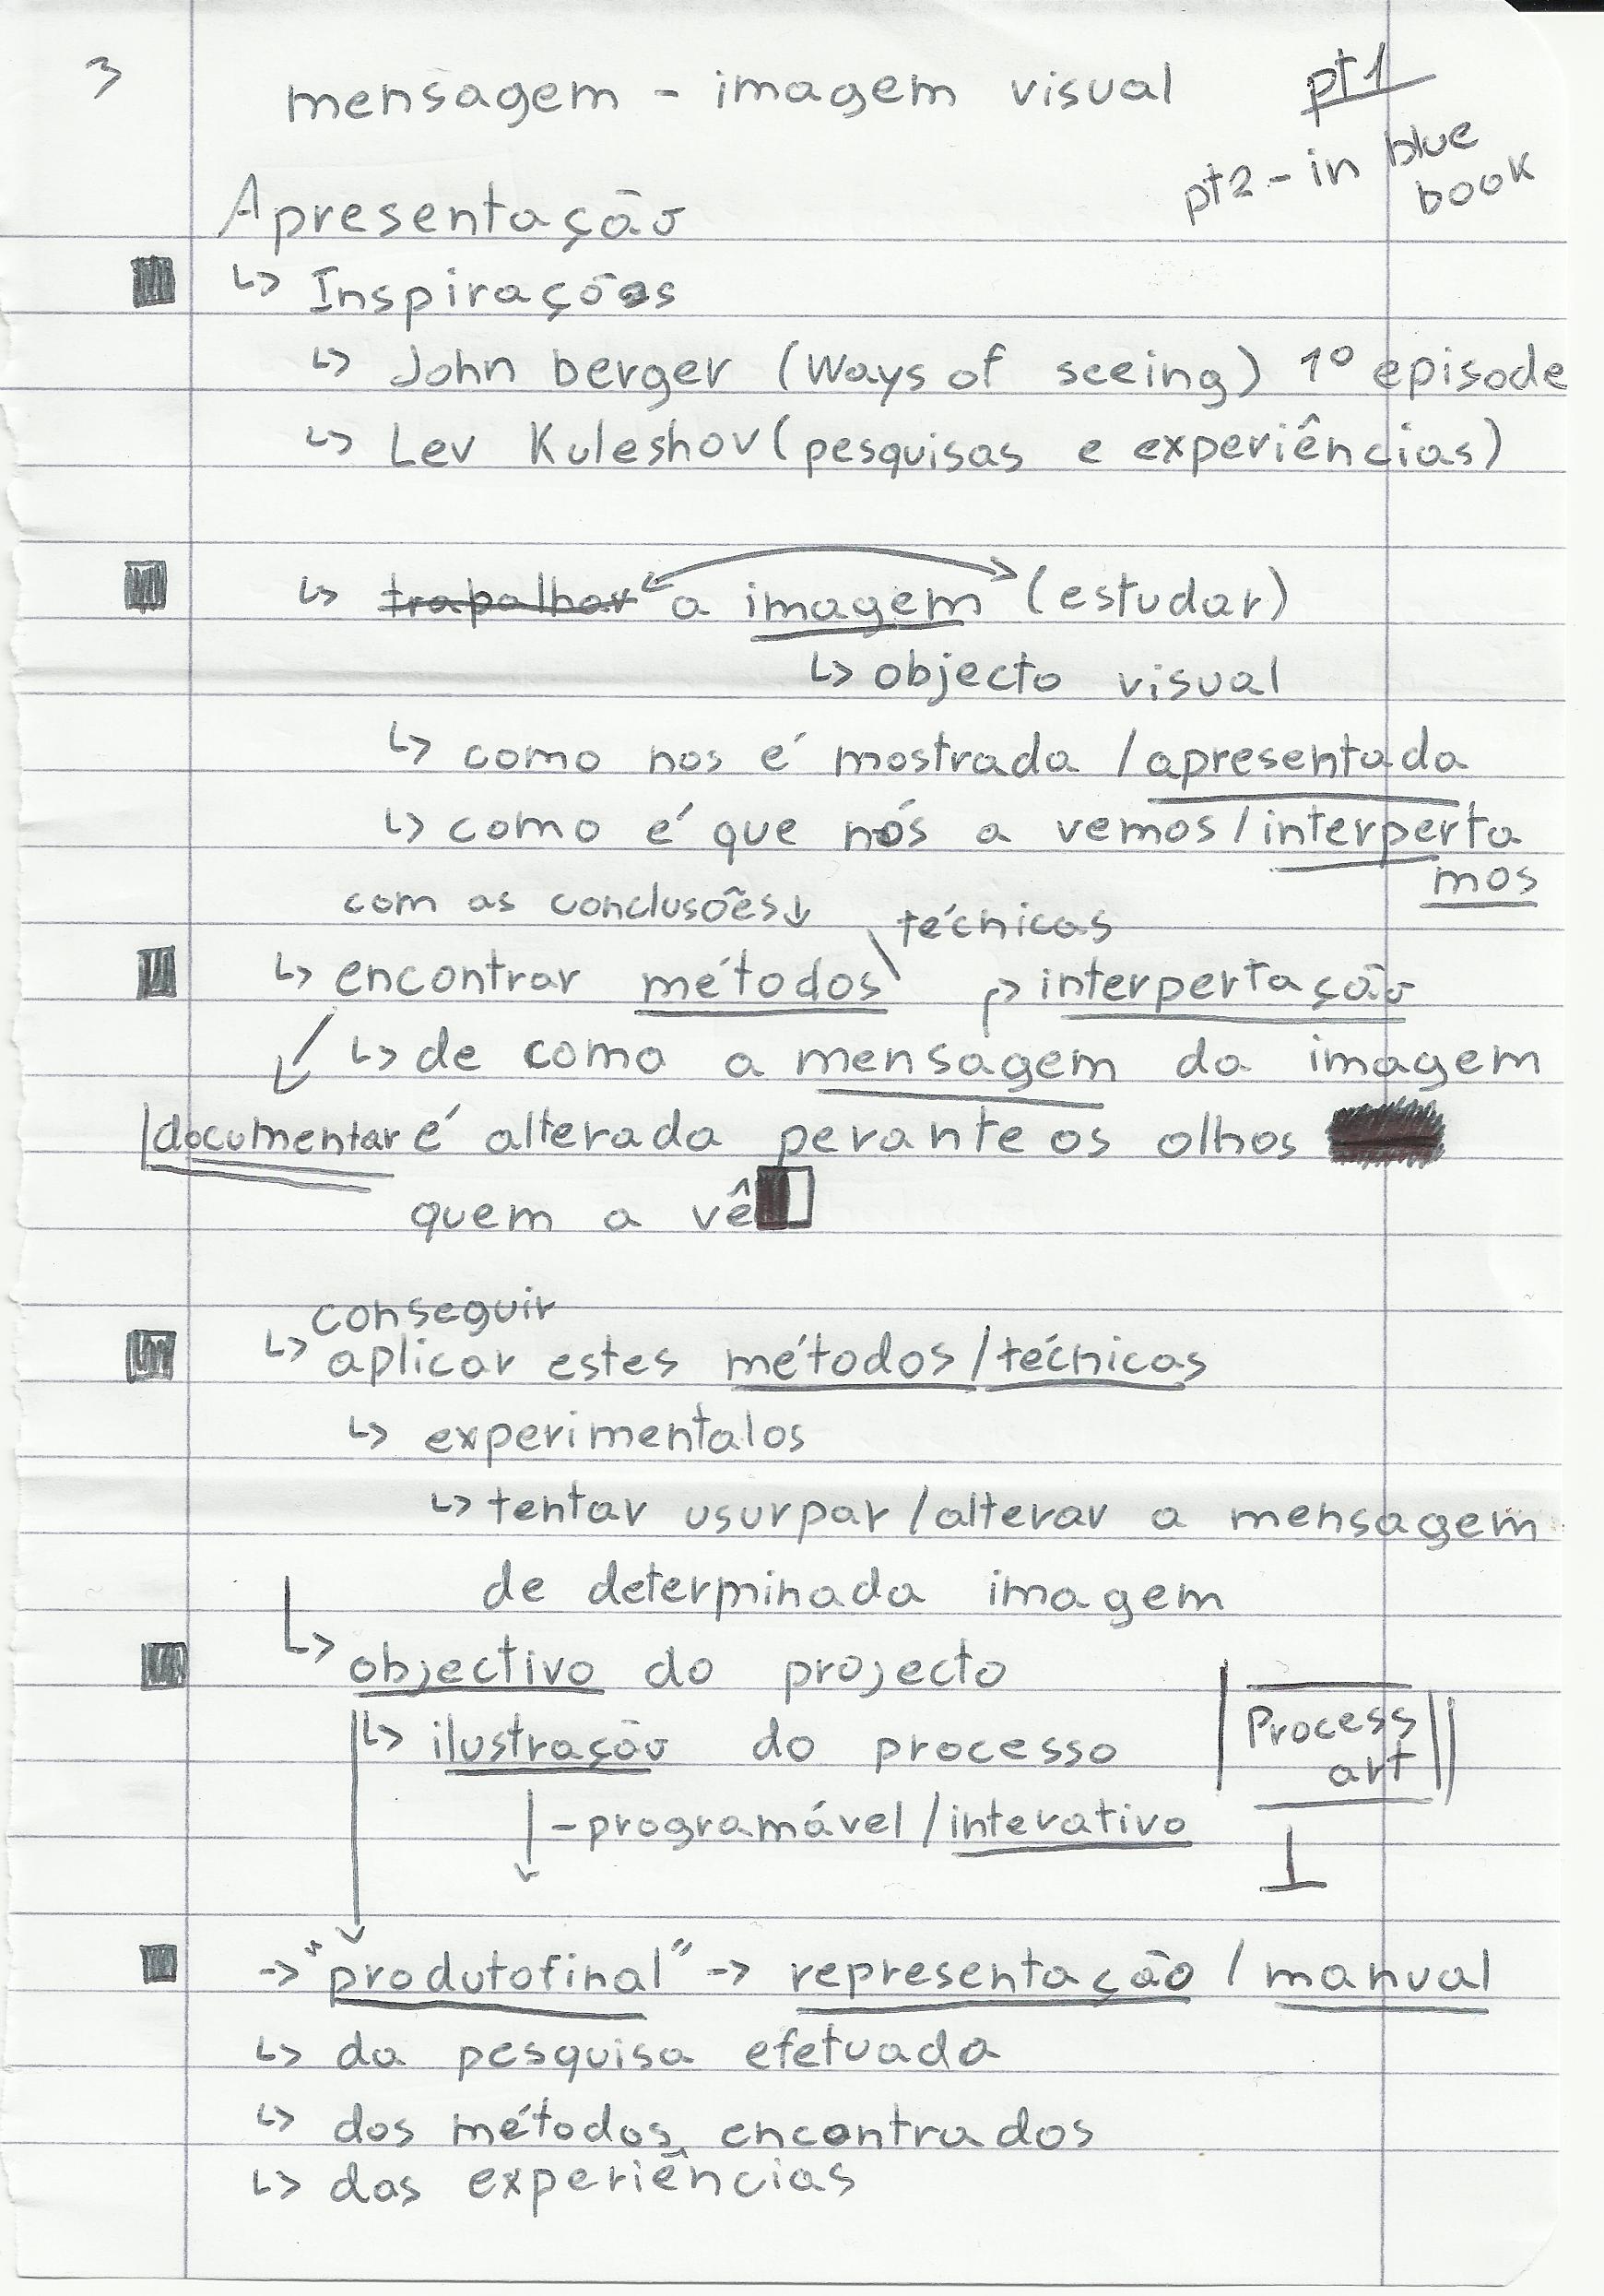 3
mensagem - imagem visual
pt1
pt2 - in blue
book
Apresentação
↳ Inspirações
↳ John berger (Ways of seeing) 1º episode
↳ Lev Kuleshov (pesquisas e experiências)
↳ trapalhar a imagem (estudar)
↳ objecto visual
↳ como nos é mostrada / apresentada
↳ como é que nós a vemos / interperta
mos
com as conclusões ↓
técnicas
↳ encontrar métodos
interpertação
↳ de como a mensagem da imagem
documentar é alterada perante os olhos
quem a vê
conseguir
↳ aplicar estes métodos / técnicas
↳ experimentalos
↳ tentar usurpar / alterar a mensagem
de determinada imagem
↳ objectivo do projecto
↳ ilustração do processo
Process
art
- programável / interativo
→ "produto final" → representação / manual
↳ da pesquisa efetuada
↳ dos métodos encontrados
↳ das experiências